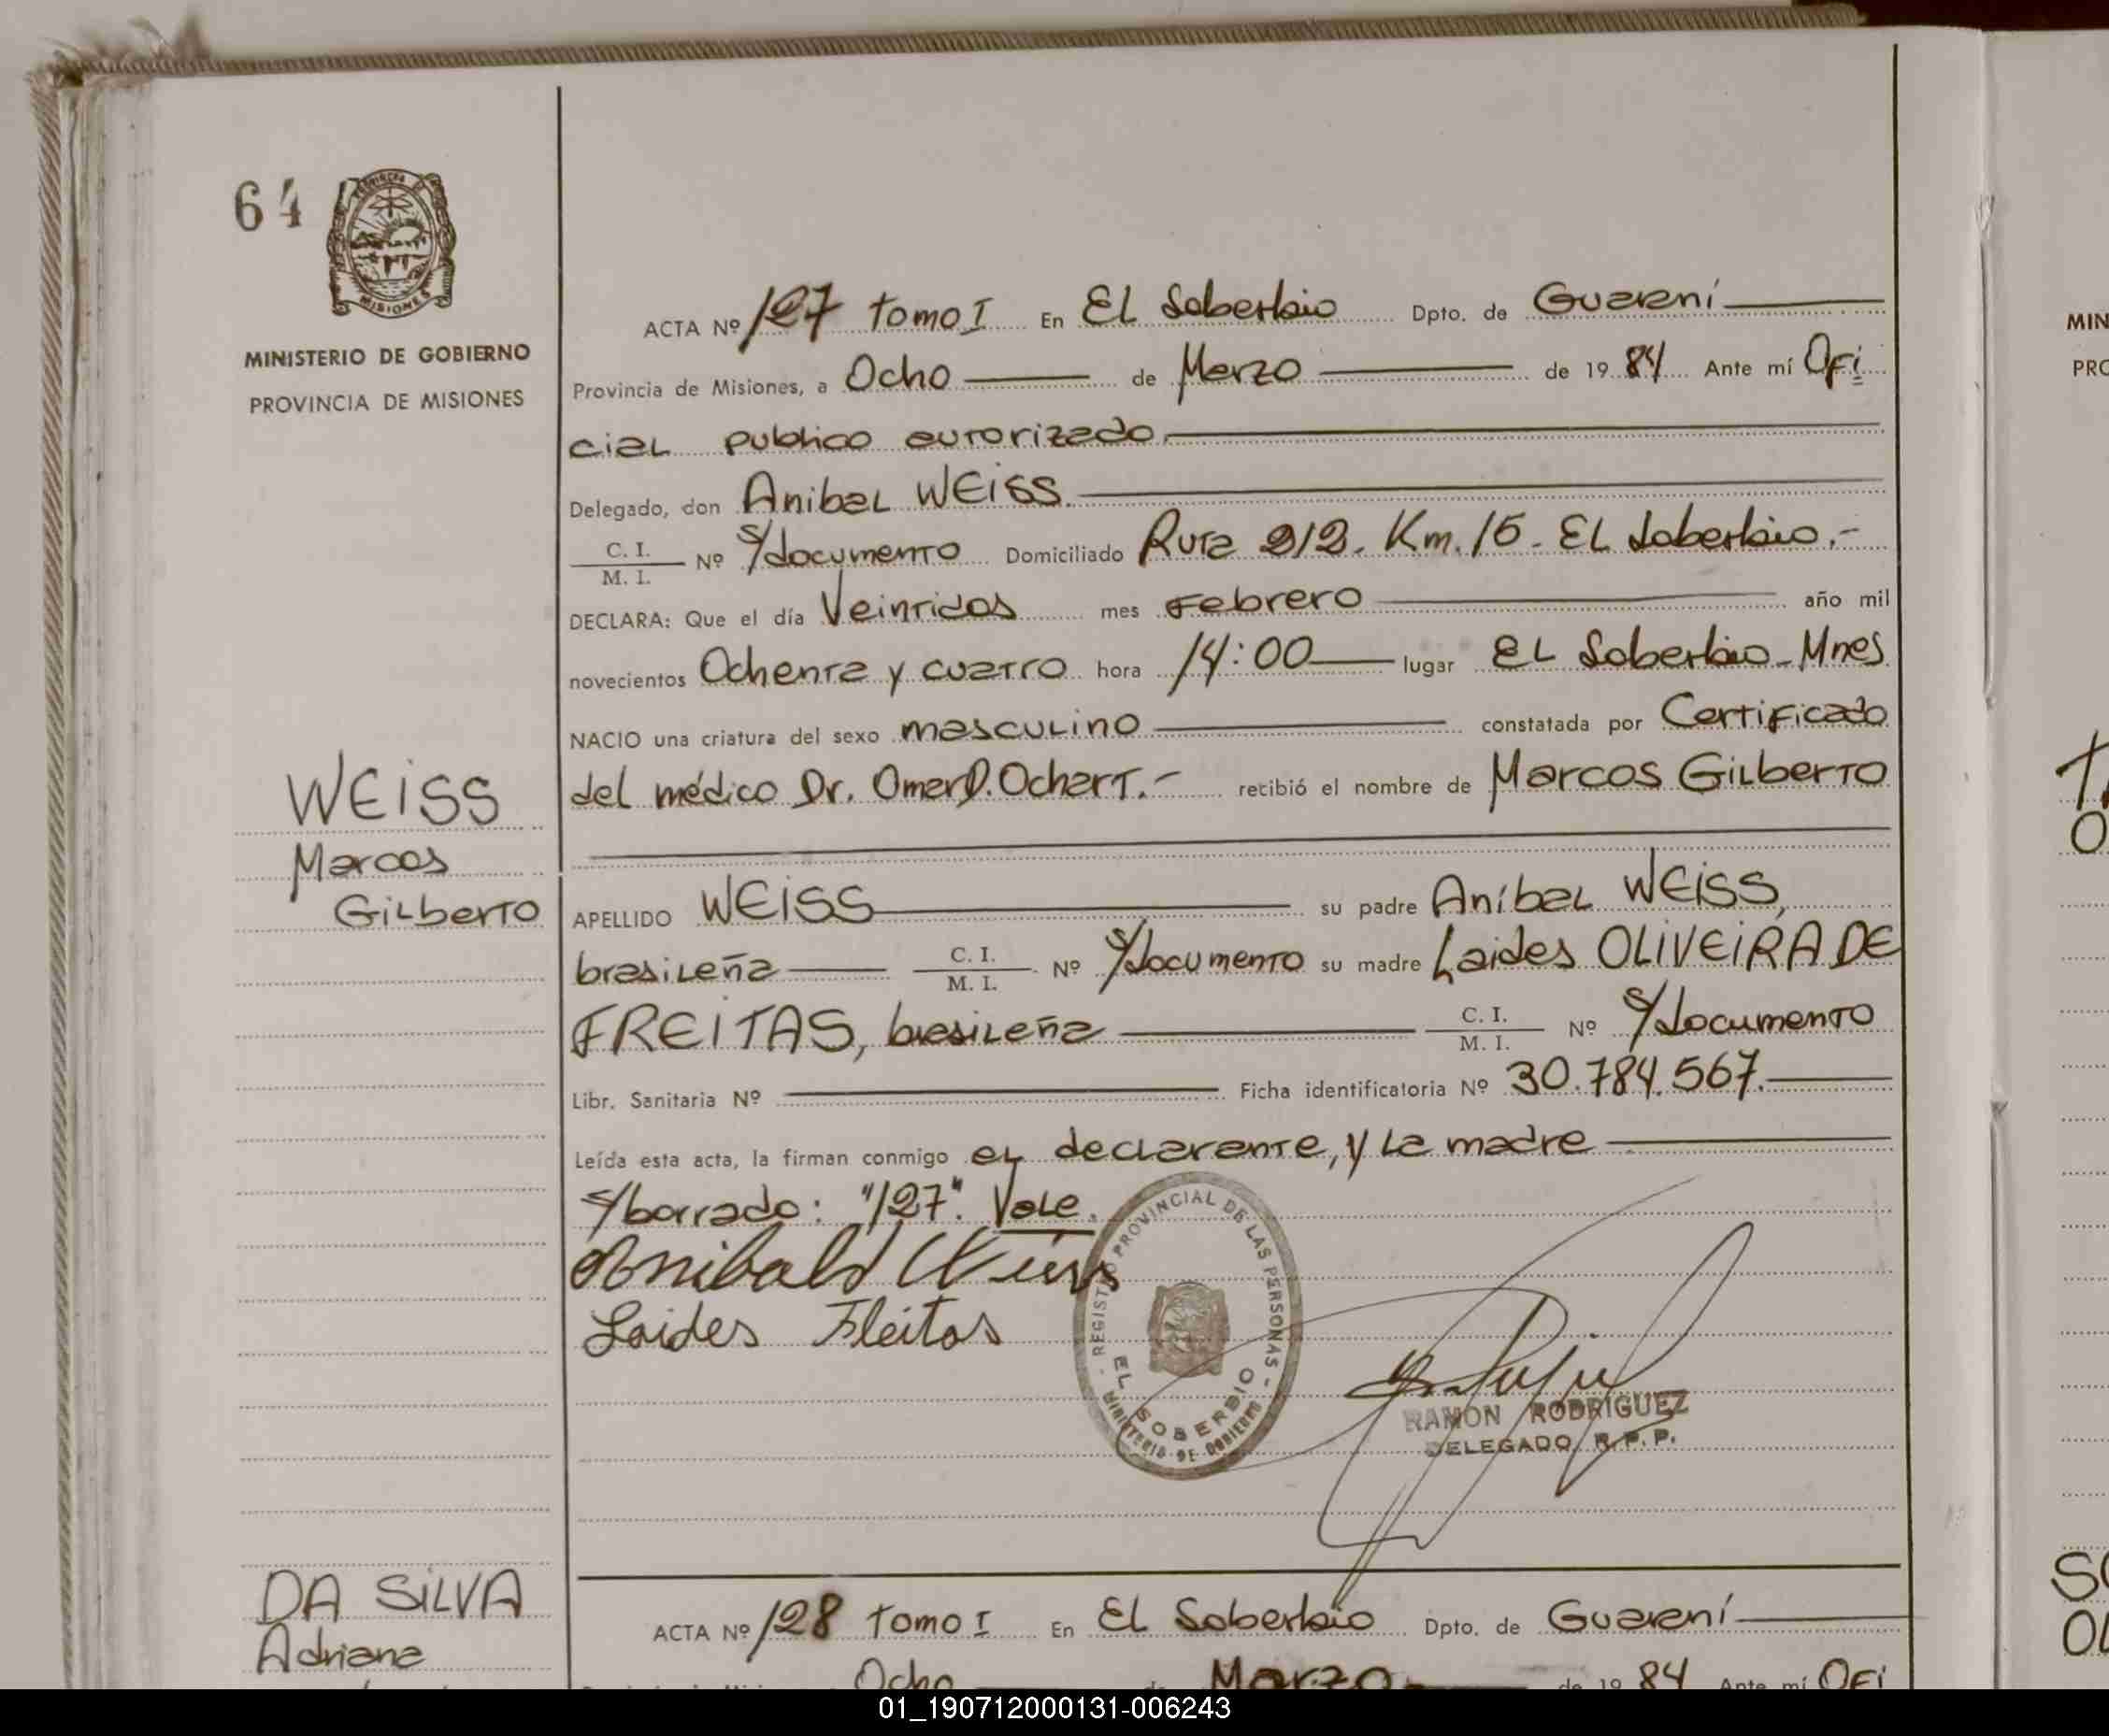 64
MISIONES
MINISTERIO DE GOBIERNO
PROVINCIA DE MISIONES
ACTA Nº 127 tomo I En El Soberbio Dpto. de Guaraní
Provincia de Misiones, a Ocho de Marzo de 1984 Ante mí Ofi
cial publico autorizado.
Delegado, don Anibal WEISS.
C. I.
M. I. Nº s/documento Domiciliado Ruta 212. Km. 15 - El Soberbio.-
DECLARA: Que el día Veintidos mes Febrero año mil
novecientos Ochenta y cuatro hora 14:00 lugar El Soberbio - Mnes
NACIO una criatura del sexo masculino constatada por Certificado
del médico Dr. Omar D. Ochart.- recibió el nombre de Marcos Gilberto
WEISS
Marcos
Gilberto
APELLIDO WEISS su padre Aníbal WEISS,
brasileña C. I.
M. I. Nº s/documento su madre Laides OLIVEIRA DE
FREITAS, brasileña C. I.
M. I. Nº s/documento
Libr. Sanitaria Nº Ficha identificatoria Nº 30.784.567.
Leída esta acta, la firman conmigo el declarante, y la madre
s/borrado: "127". Vale.
Anibald Weiss
Laides Fleitas
REGISTRO PROVINCIAL DE LAS PERSONAS
EL SOBERBIO
MINISTERIO DE GOBIERNO
RAMON RODRIGUEZ
DELEGADO R. P. P.
DA SILVA
Adriana
ACTA Nº 128 tomo I En El Soberbio Dpto. de Guaraní
Ocho de Marzo de 1984 Ante mí Ofi
MIN
PRO
01_190712000131-006243